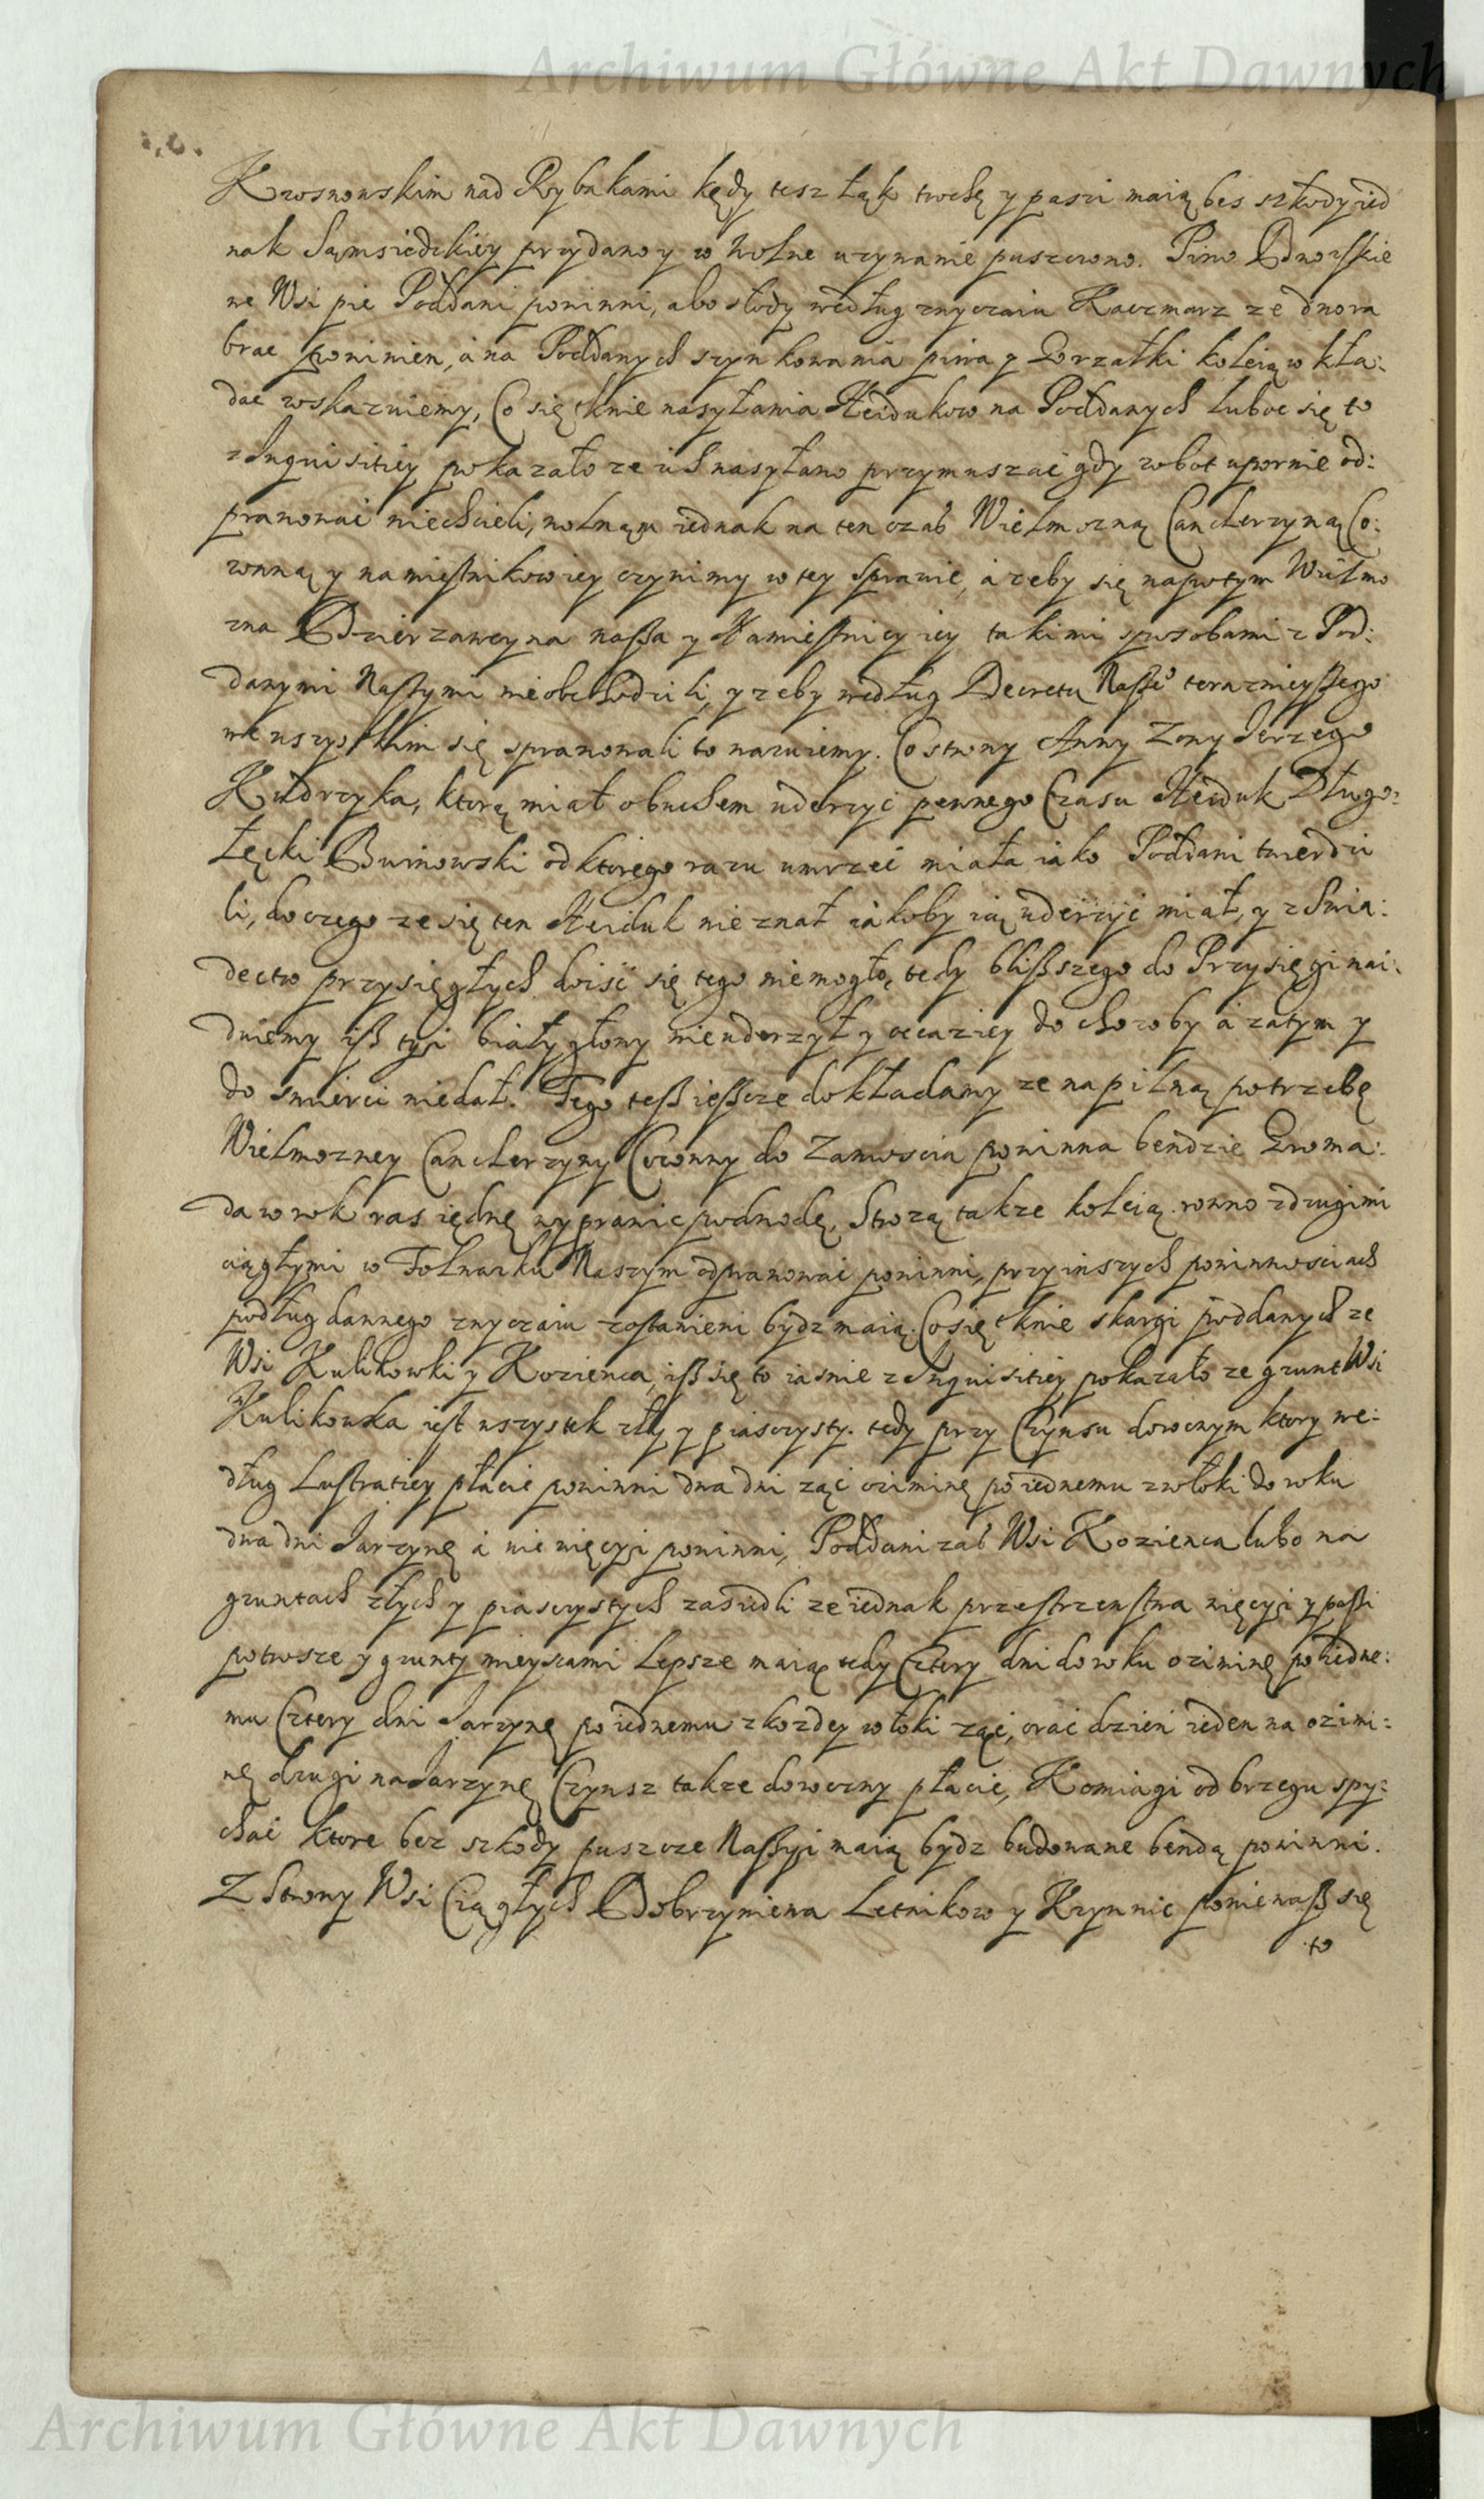 Archiwum Główne Akt Dawnych
Krosnowskim nad Rybakami kędy tesz Łąk trochę y paszi maią bes szkody ied
nak Sąmsiedzkiey przydano y w wolne uzywanie puszczono. Piwo Dworskie
we Wsi pić Poddani powinni, abo słody według zwyczaiu Kaczmarz ze dwora
brac powinien, a na Poddanych szynkowania piwa y Gorzałki koleią wkła:
dac wskazuiemy, Co się tknie nasyłania Heidukow na Poddanych luboc się to
z Inquisitiey pokazało ze ich nasyłano przymuszac gdy robot upornie od:
prawowac niechcieli, wolnąm iednak na ten czas Wielmozną Canclerzyną Co:
ronną y namiestnikow iey czynimy w tey sprawie, a zeby się napotym Wielmo
zna Dzierzawczyna nassa y Namiestnicy iey takimi sposobami z Pod:
danymi Naszymi nieobchodzili, y zeby według Decretu Nasse° terazniejssego
we wszystkim się sprawowali to nazuiemy. Co strony Anny Zony Ierzego
Kudrzyka, ktorą miał obuchem uderzyć pewnego Czasu Heiduk Długo:
Łęcki Burnowski od ktorego razu umrzeć miała iako Poddani twierdzi
li, do czego ze się ten Heiduk nie znał iakoby ią uderzyć miał, y z Swia:
dectw przysięgłych doiść się tego niemogło, tedy blisszego do Przysięgi nai:
duiemy iss tyi białygłowy nieuderzył y occaziey do choroby a zatym y
do smierci niedał. Tego tess iessze dokładamy ze na pilną potrzebę
Wielmozney Canclerzyny Coronny do Zamoscia powinna bendzie Groma:
da w rok ras iędnę wyprawic podwodę, Strozą takze koleią rowno z drugimi
ciągłymi w Folwarku Naszym odprawowac powinni, przy inszych powinnosciach
podług dawnego zwyczaiu zostawieni bydz maią. Co się tknie skargi poddanych ze
Wsi Kulikowki y Kozienca, iss się to iasnie z Inquisitiey pokazało ze grunt Wsi
Kulikowka iest wszystek zły y piasczysty. tedy przy Czynsu dorocnym ktory we:
dług Lustratiey płacic powinni dwa dni ząć oziminę po iednemu z włoki do roku
dwa dni Iarzynę a nie więcyi powinni, Poddani zas Wsi Kozienca lubo na
gruntach złych y piasczystych zasiedli ze iednak przestrzenstwa więcyi y passi
potrosze y grunty mieyscami Lepsze maią tedy Cztery dni do roku oziminę po iedne:
mu Cztery dni Iarzynę po iednemu z kozdey włoki ząć, orać dzień ieden na ozimi:
nę drugi na Iarzynę Czynsz takze doroczny płacić, Komiagi od brzegu spy:
chać ktore bez szkody puszcze Nassyi maią bydz budowane bendą powinni.
Z Strony Wsi Ciągłych Dobrzyniewa Letnikow y Krynnic poniewass się
to
Archiwum Główne Akt Dawnych